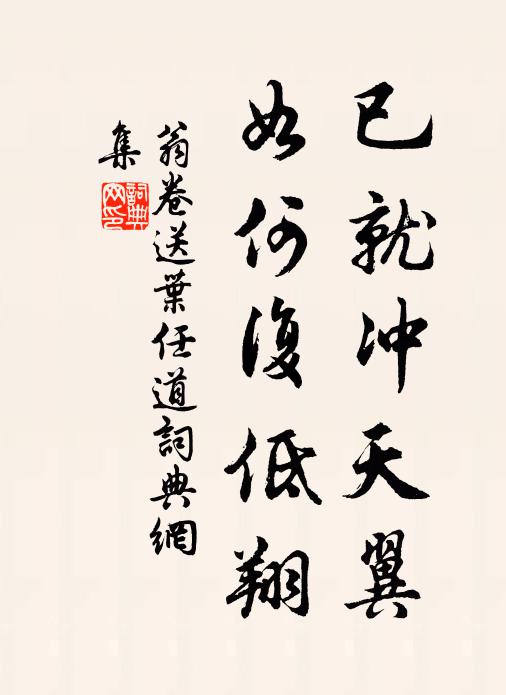 已就冲天翼
如何復低翔
翁卷送葉任道詞典網
集
詞典
网印